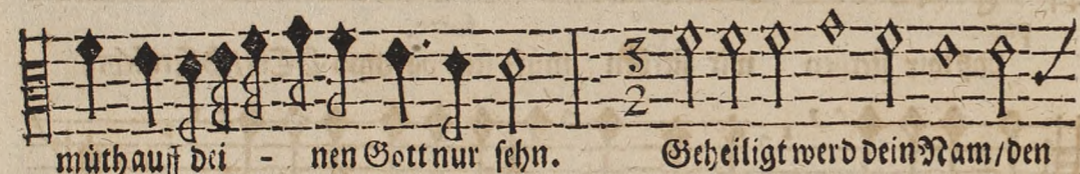 3
2
müth auff dei - nen Gott nur sehn. Geheiligt werd dein Nam/den